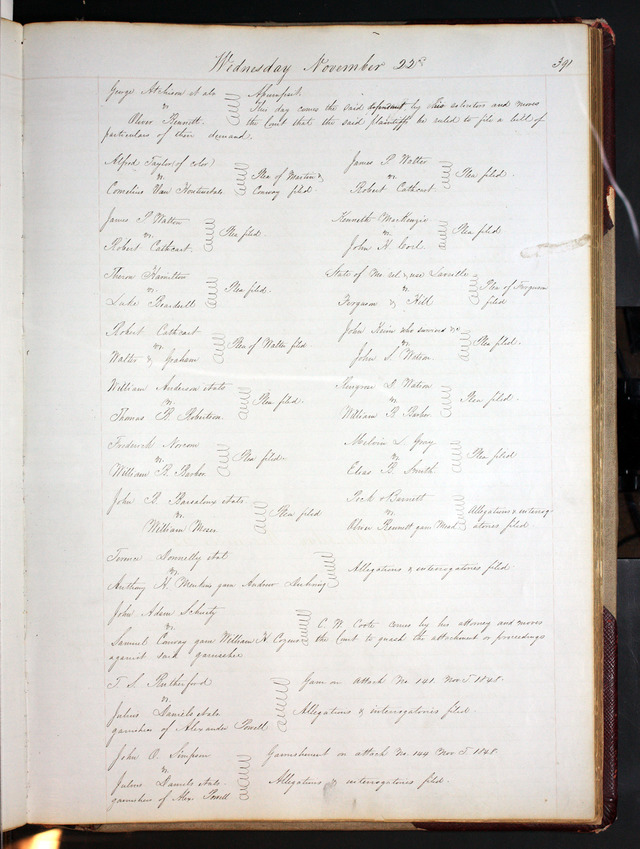 Wednesday November 22d 391
George Atchison et als Assumpsit.
vs This day comes the said defendant by his solicitors and moves
Oliver Bennett. the Court that the said plaintiffs be ruled to file a bill of
particulars of their demand.
Alfred Taylor (of color)
vs. Plea of Marston &
Cornelius Van Houten Conway filed.
James P. Walter
vs. Plea filed.
Robert Cathcart
James P. Walton
vs. Plea filed.
Robert Cathcart.
Kenneth MacKenzie
vs. Plea filed
John K. Corl.
Theron Hamilton
vs Plea filed.
Luke Beardsell
State of Mo rel & use
vs. Plea of Ferguson
Ferguson & Hill filed
Robert Cathcart
vs. Plea of Walter filed
Walter & Graham
John Keim who survived &c
vs. Plea filed.
John S. Watson
William Anderson et als
vs Plea filed.
Thomas R. Robertson
Simpson S. Watson
vs Plea filed.
William R. Barker
Frederick Norcom
vs. Plea filed.
William R. Barker
Melvin L. Gray
vs. Plea filed
Elias B. Smith
John B. Barsaloux et als.
vs Plea filed
William Moses
Peck & Barnett
vs. Allegations & interrog-
Oliver Bennett garn Mead atories filed
Terence Donnelly et al
vs. Allegations & interrogatories filed.
Anthony H. Menkens garn Andrew
John Adam Schuetz
vs. C. W. Coote comes by his attorney and moves
Samuel Conway garn William H. Cozens the Court to quash the attachment or proceedings
against said garnishee
T. S. Rutherford Garn on attach No 141 Nov T. 1848.
vs.
Julius Daniels et als Allegations & interrogatories filed.
garnishees of Alexander Powell
John O. Simpson Garnishment on attach No. 144 Nov T. 1848.
vs.
Julius Daniels et als. Allegations & interrogatories filed.
garnishees of Alex. Powell